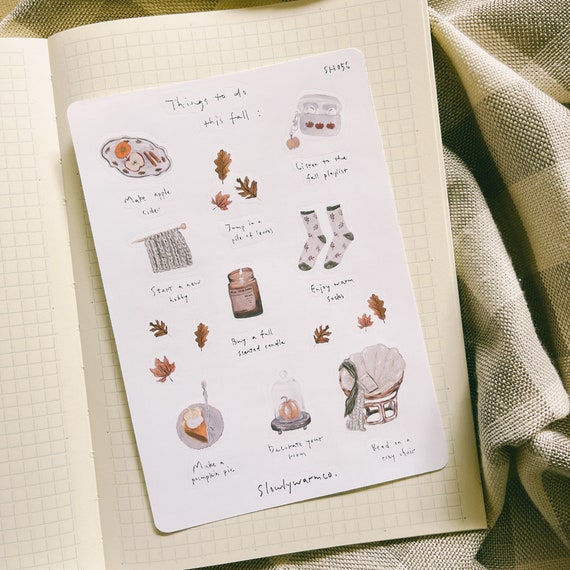 SH056
Things to do
this fall :
Make apple
cider
Jump in a
pile of leaves
Listen to the
fall playlist
Start a new
hobby
Buy a fall
scented candle
Enjoy warm
socks
Make a
pumpkin pie
Decorate your
room
Read on a
cozy chair
Slowlywarmco.